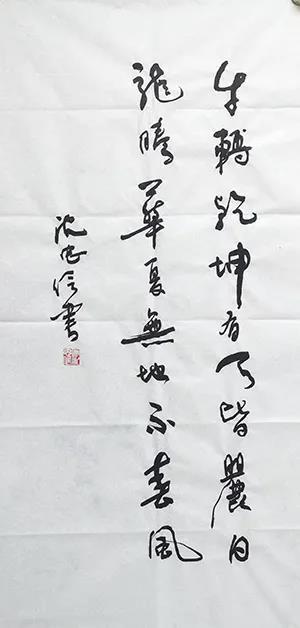 牛轉乾坤有天皆麗日
龍騰華夏無地不春風
沈忠信書